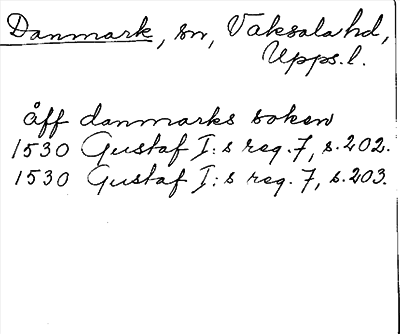 Danmark, sn, Vaksala hd,
Upps. l.
åff danmarks soken
1530 Gustaf I:s reg. 7, s. 202.
1530 Gustaf I:s reg. 7, s. 203.